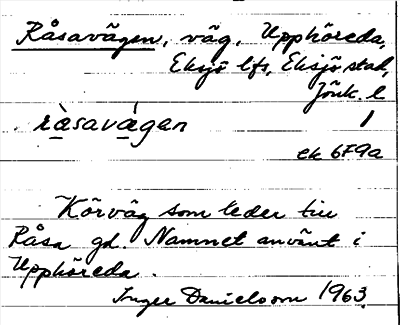 Råsavägen, väg, Upphöreda,
Eksjö lfs, Eksjö stad,
Jönk. l
ràsavä́gan 1
ek 6F9a
Körväg som leder till
Råsa gd. Namnet använt i
Upphöreda.
Inger Danielsson 1963